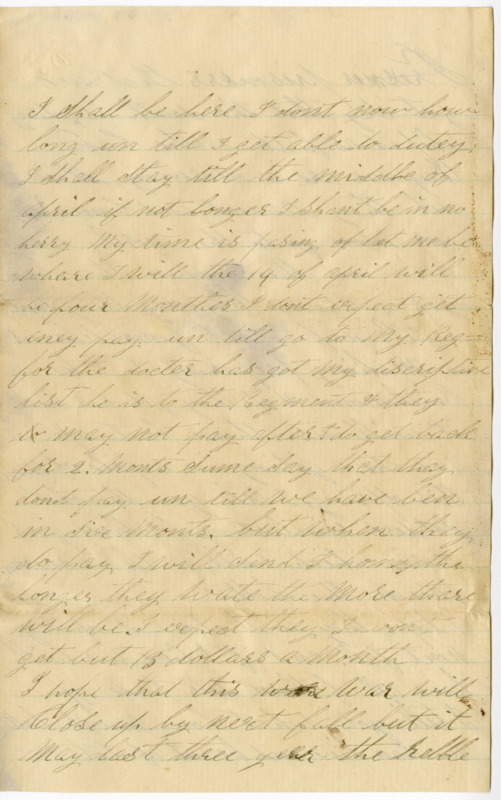 I Shall be here I dont now how
long un till I get able to dutey
I shall stay till the middle of
april if not longer I shant be in no
herry My time is pasing of let me be
where I will the 19 of april will
be four Monthes I dont expect get
eney pay un till go to My Reg—
for the docter has got My discriptive
list he is to the Regment & they
may not pay after I do get back
for 2 Monts Sume Say that they
dont pay un till we have ben
in Six Monts. but when they
do pay I will Send I home the
longer they wate the More thare
will be. I expect they I wont
get but 13 dollars a Month
I hope that this war will
Close up by next fall but it
May last three year the Rebble